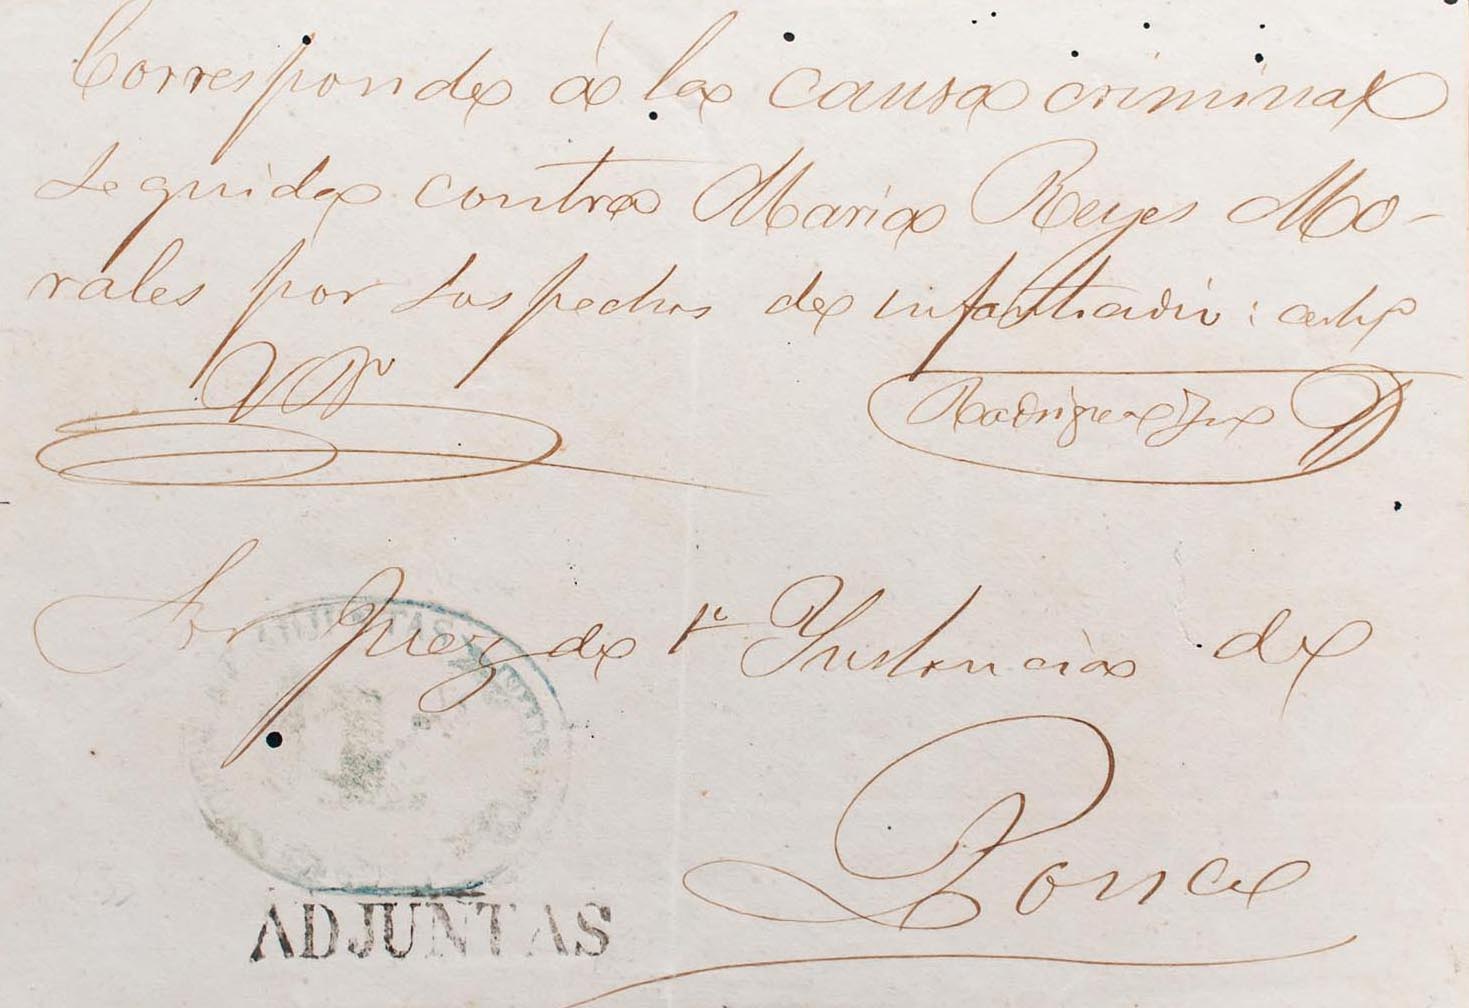 Corresponde á la causa criminal
seguida contra Maria Reyes Mo-
rales por sospechas de infanticidio:
Rodriguez
Sor Juez de 1a Instancia de
Ponce
ADJUNTAS
ADJUNTAS